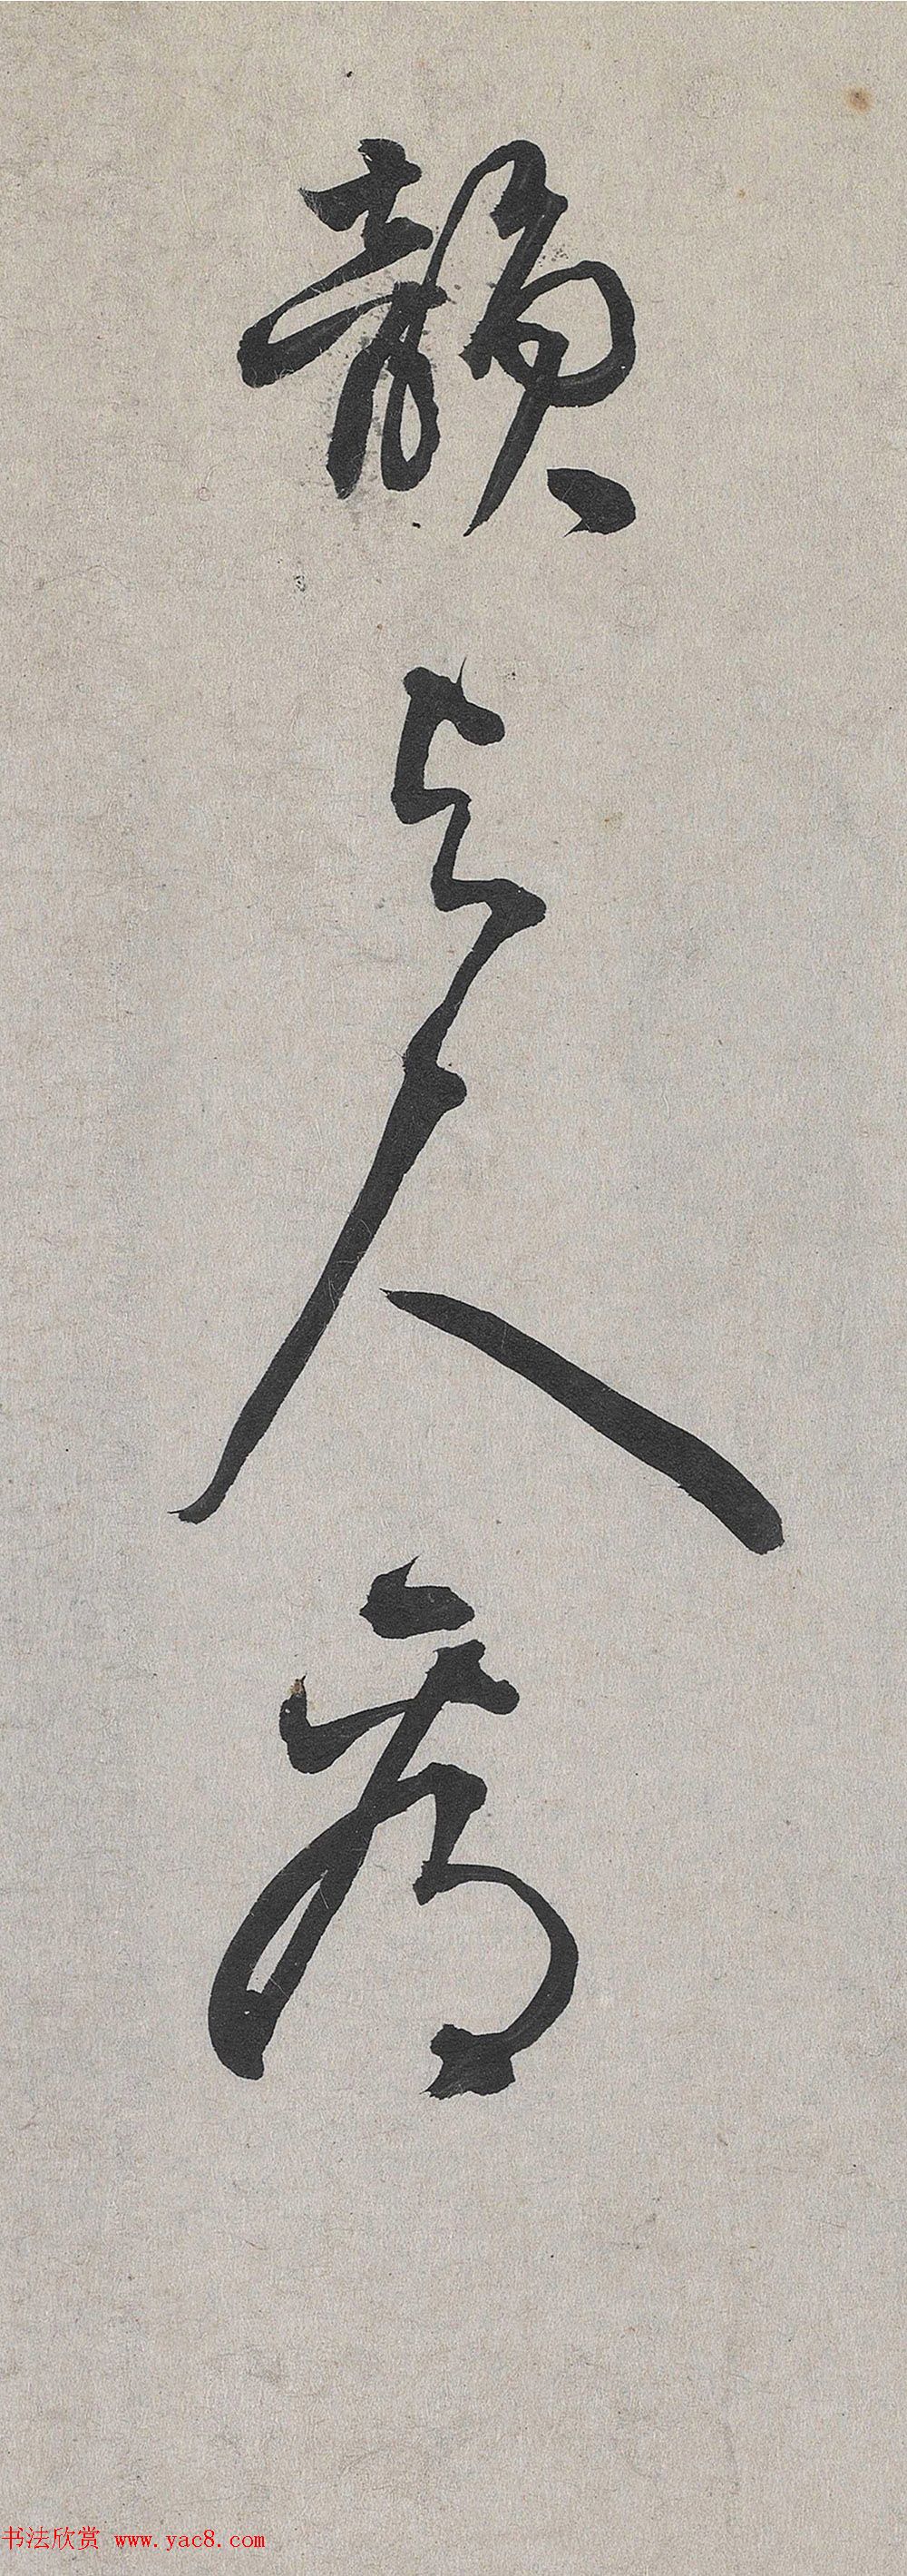 韻与人
书法欣赏 www.yac8.com